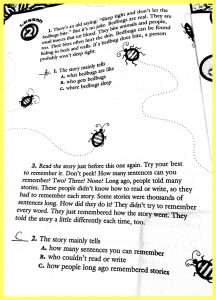 Lesson
2
1. There's an old saying: "Sleep tight and don't let the
bedbugs bite." But it's no joke. Bedbugs are real. They are
small insects that eat blood. They bite animals and people,
too. Their bites often hurt the skin. Bedbugs can be found
hiding in beds and walls. If a bedbug does bite, a person
probably won't sleep tight.
1. The story mainly tells
A. what bedbugs are like
B. who gets bedbugs
C. where bedbugs sleep
2. Read the story just before this one again. Try your best
to remember it. Don't peek! How many sentences can you
remember? Two? Three? None? Long ago, people told many
stories. These people didn't know how to read or write, so they
had to remember each story. Some stories were thousands of
sentences long. How did they do it? They didn't try to remember
every word. They just remembered how the story went. They
told the story a little differently each time, too.
C 2. The story mainly tells
A. how many sentences you can remember
B. who couldn't read or write
C. how people long ago remembered stories